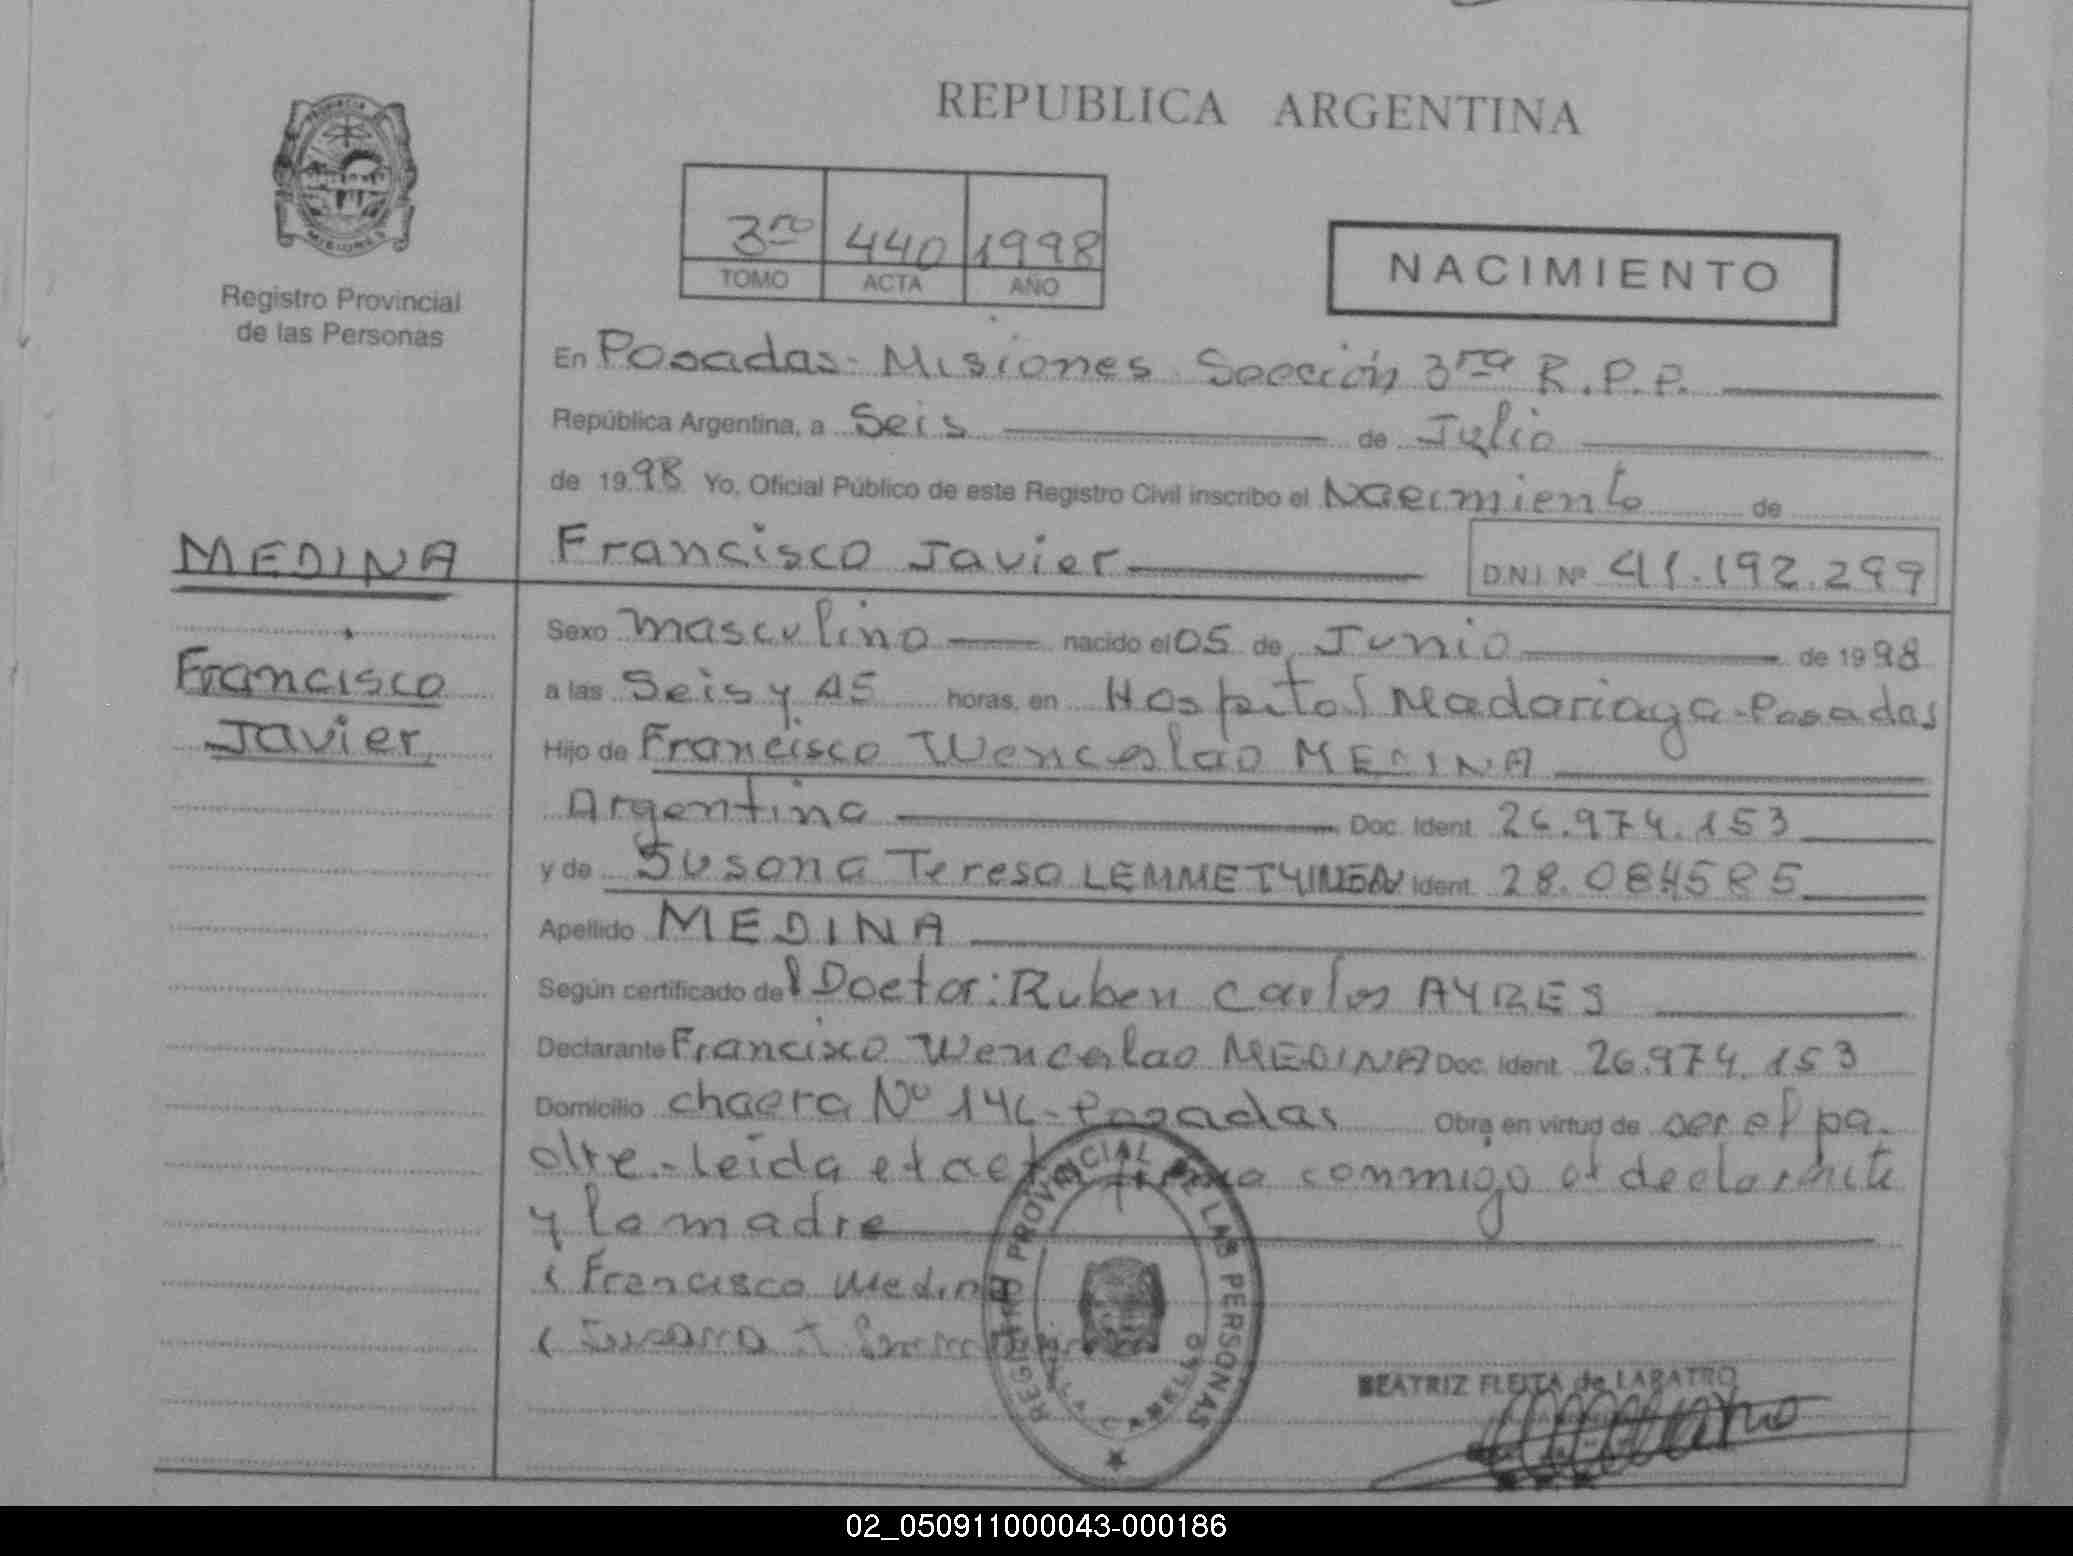 REPUBLICA ARGENTINA
3ro 440 1998
TOMO ACTA AÑO
NACIMIENTO
Registro Provincial
de las Personas
En Posadas - Misiones Sección 3ra R.P.P.
República Argentina, a Seis de Julio
de 1998 Yo, Oficial Público de este Registro Civil inscribo el Nacimiento de
MEDINA
Francisco Javier
Francisco Javier D.N.I. Nº 41.192.299
Sexo masculino nacido el 05 de Junio de 1998
a las Seis y 45 horas, en Hospital Madariaga - Posadas
Hijo de Francisco Wenceslao MEDINA
Argentina Doc. Ident. 26.974.153
y de Susana Teresa LEMMETYINEN Ident. 28.084585
Apellido MEDINA
Según certificado del Doctor: Ruben Carlos AYRES
Declarante Francisco Wenceslao MEDINA Doc. Ident. 26.974.153
Domicilio chacra Nº 146 - Posadas Obra en virtud de ser el pa-
dre - leída el acta firma conmigo el declarante
y la madre
( Francisco Medina
( Susana T
REGISTRO PROVINCIAL DE LAS PERSONAS
VILLA CABELLO
BEATRIZ FLEITA de LABATRO
02_050911000043-000186